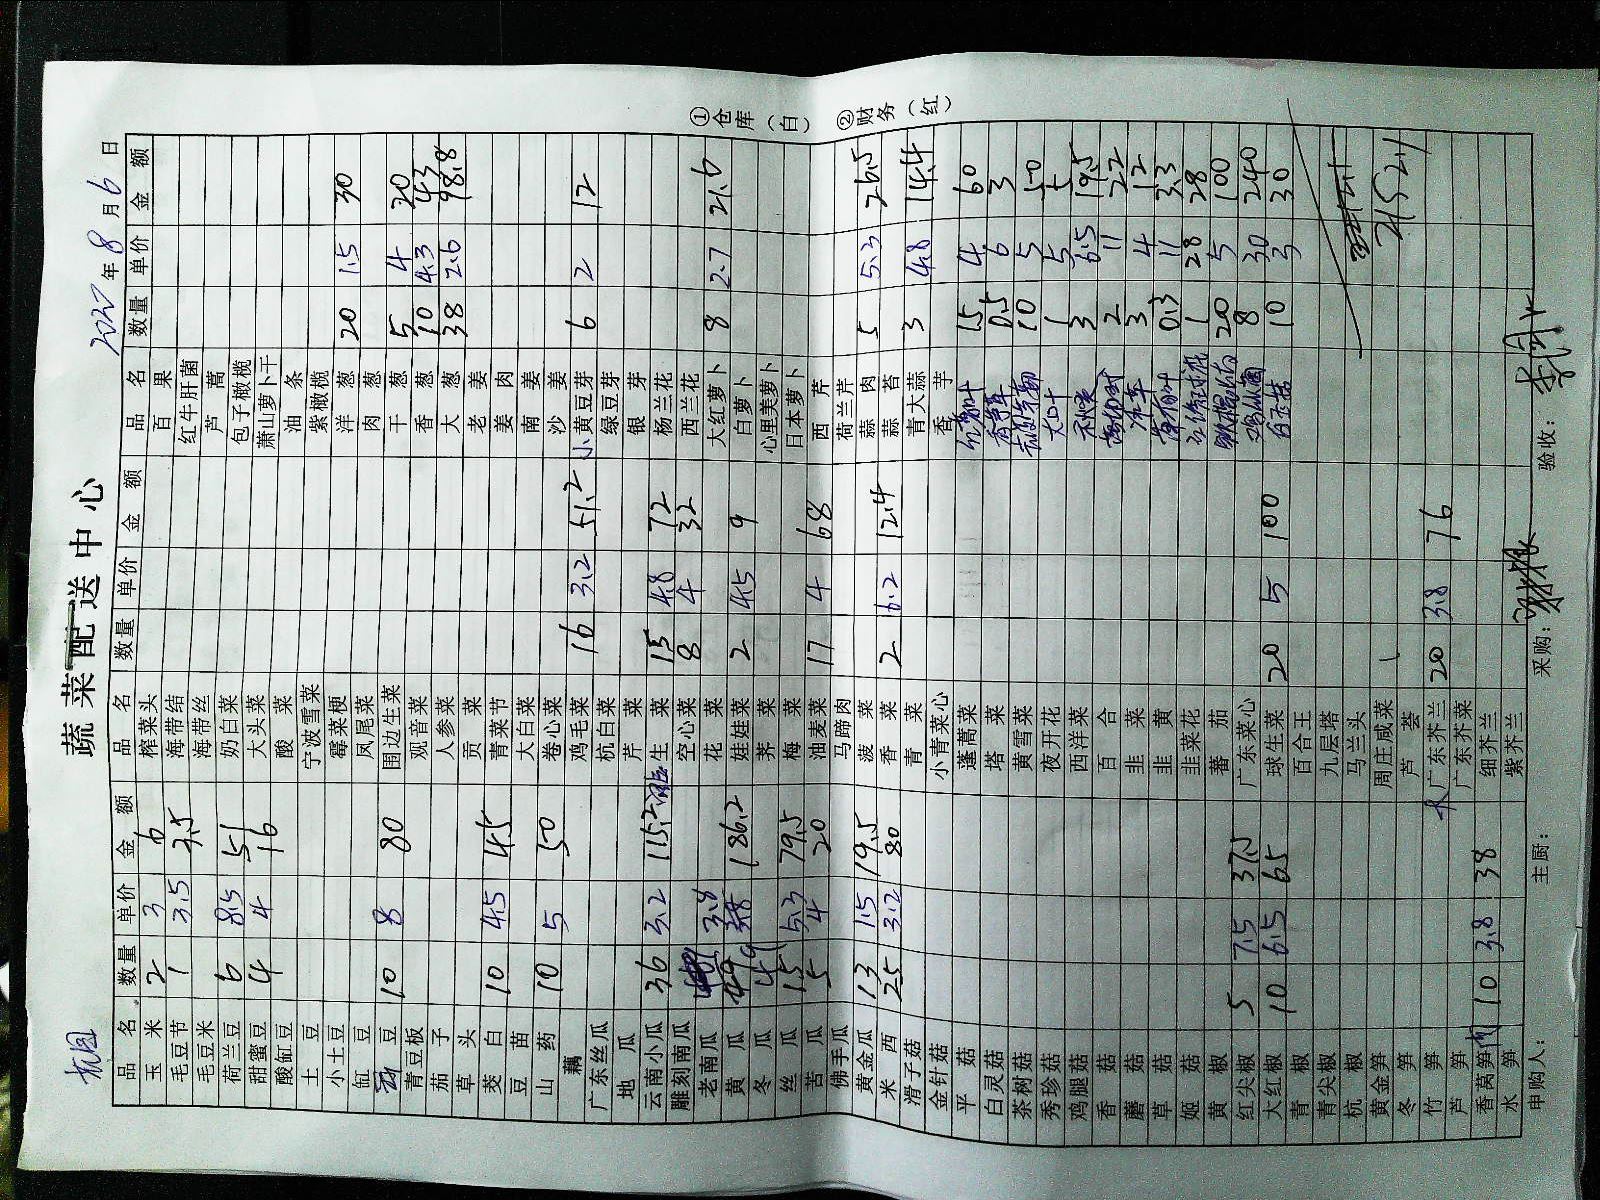 蔬菜配送中心
杭图
2022年8月6日
品名 数量 单价 金额 品名 数量 单价 金额 品名 数量 单价 金额
玉米 2 3 6 榨菜头 百果
毛豆节 1 3.5 3.5 海带结 红牛肝菌
毛豆米 海带丝 芦蒿
荷兰豆 6 8.5 51 奶白菜 包子橄榄
甜蜜豆 4 4 16 大头菜 萧山萝卜干
酸缸豆 酸菜 油条
土豆 宁波雪菜 紫橄榄
小土豆 霉菜梗 洋葱 20 1.5 30
缸豆 凤尾菜 肉葱
豆 10 8 80 围边生菜 干葱 5 4 20
青豆板 观音菜 香葱 10 4.3 43
茄子 人参菜 大葱 38 2.6 98.8
草头 贡菜 老姜
茭白 10 4.5 45 青菜节 姜肉
豆苗 大白菜 南姜
山药 10 5 50 卷心菜 沙姜
藕 鸡毛菜 16 3.2 51.2 小黄豆芽 6 2 12
广东丝瓜 杭白菜 绿豆芽
地瓜 芹菜 银芽
云南小瓜 36 3.2 115.2 生菜 15 4.8 72 杨兰花
雕刻南瓜 空心菜 8 4 32 西兰花
老南瓜 3.8 花菜 大红萝卜 8 2.7 21.6
黄瓜 49 3.8 186.2 娃娃菜 2 4.5 9 白萝卜
冬瓜 49 荠菜 心里美萝卜
丝瓜 15 5.3 79.5 梅菜 日本萝卜
苦瓜 5 4 20 油麦菜 17 4 68 西芹
佛手瓜 马蹄肉 荷兰芹
黄金瓜 13 1.5 19.5 菠菜 蒜肉 5 5.3 26.5
米西 25 3.2 80 香菜 2 6.2 12.4 蒜苔
滑子菇 青菜 青大蒜 3 4.8 14.4
金针菇 小青菜心 香芋
平菇 蓬蒿菜 15 4 60
白灵菇 塔菜 0.5 6 3
茶树菇 黄雪菜 10 5 50
秀珍菇 夜开花 大口叶 1 5 5
鸡腿菇 西洋菜 3 6.5 19.5
香菇 百合 2 11 22
蘑菇 韭菜 3 4 12
草菇 韭黄 0.3 11 3.3
姬菇 韭菜花 1 28 28
黄椒 蕃茄 20 5 100
红尖椒 5 7.5 37.5 广东菜心 8 30 240
大红椒 10 6.5 65 球生菜 20 5 100 白玉菇 10 3 30
青椒 百合王
青尖椒 九层塔
杭椒 马兰头
黄金笋 周庄咸菜
冬笋 芦荟
竹笋 广东芥兰 20 3.8 76
芦笋 广东芥菜
香莴笋 10 3.8 38 细芥兰
水笋 紫芥兰
2152.1
申购人： 主厨： 采购： 验收：
①仓库（白） ②财务（红）